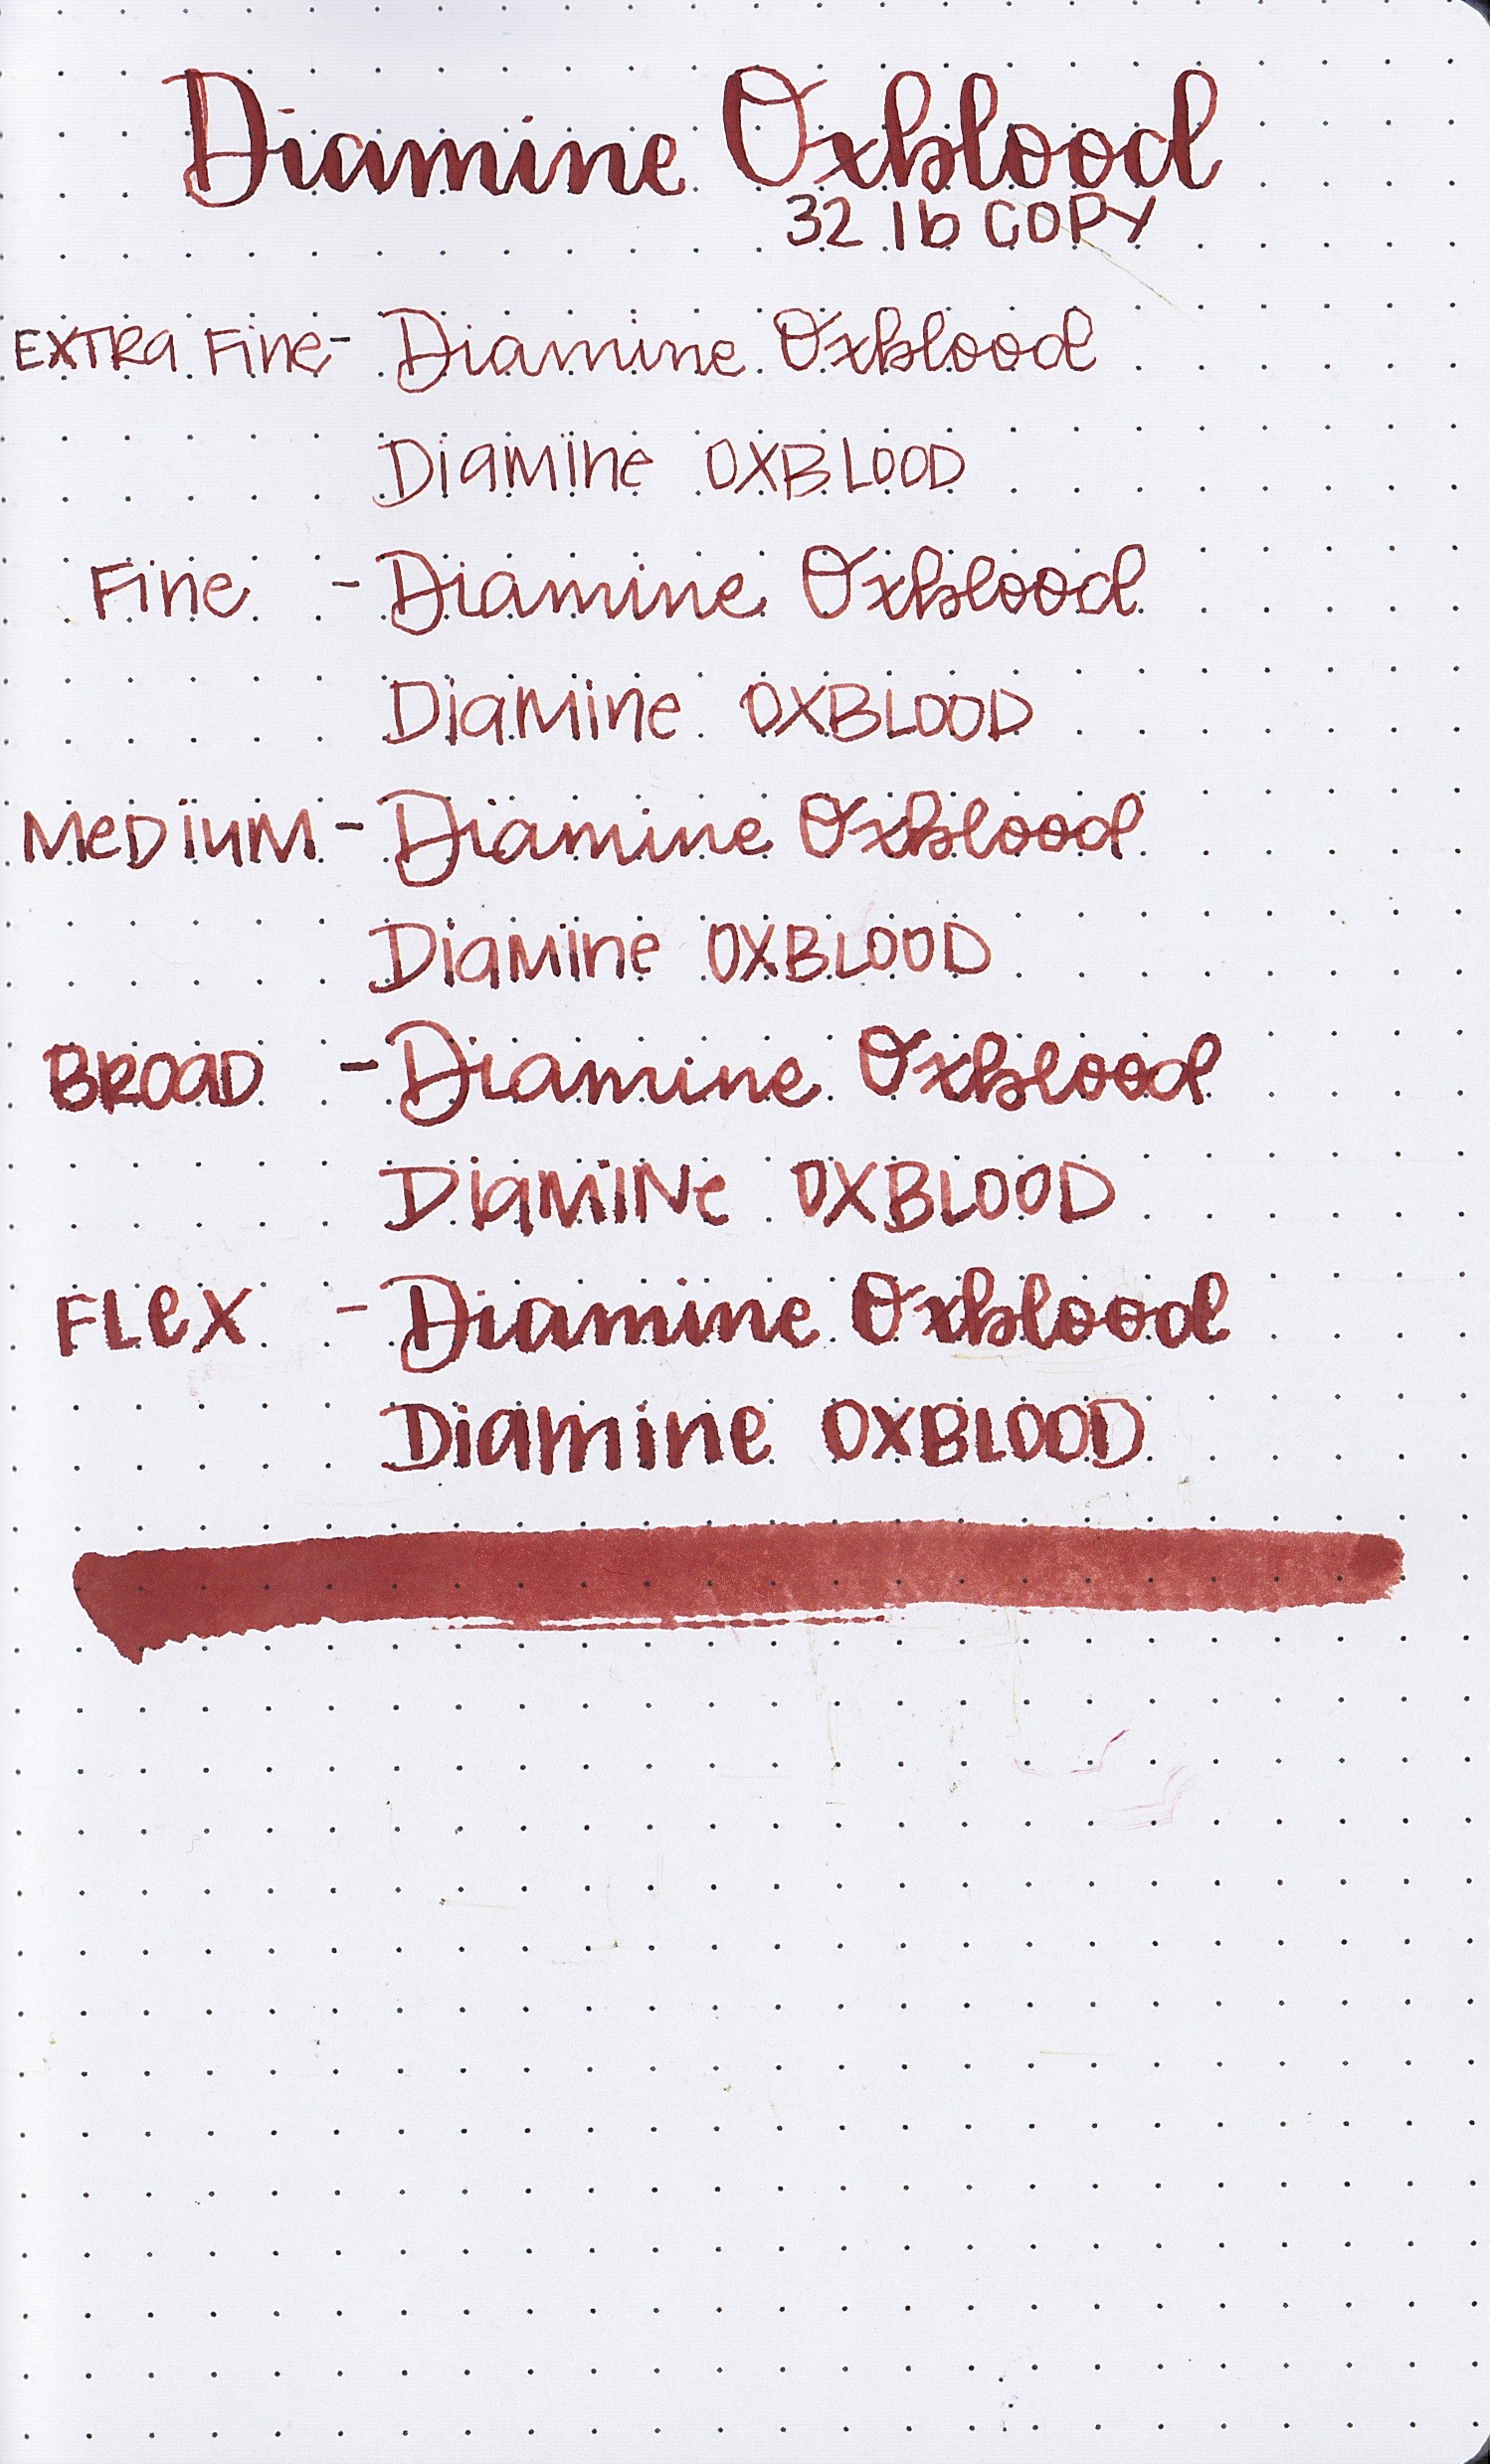 Diamine Oxblood
32 lb COPY
EXTRa Fine - Diamine Oxblood
Diamine OXBLOOD
Fine - Diamine Oxblood
Diamine OXBLOOD
MeDiuM - Diamine Oxblood
Diamine OXBLOOD
BROaD - Diamine Oxblood
DiaMiNe OXBLOOD
FLex - Diamine Oxblood
Diamine OXBLOOD